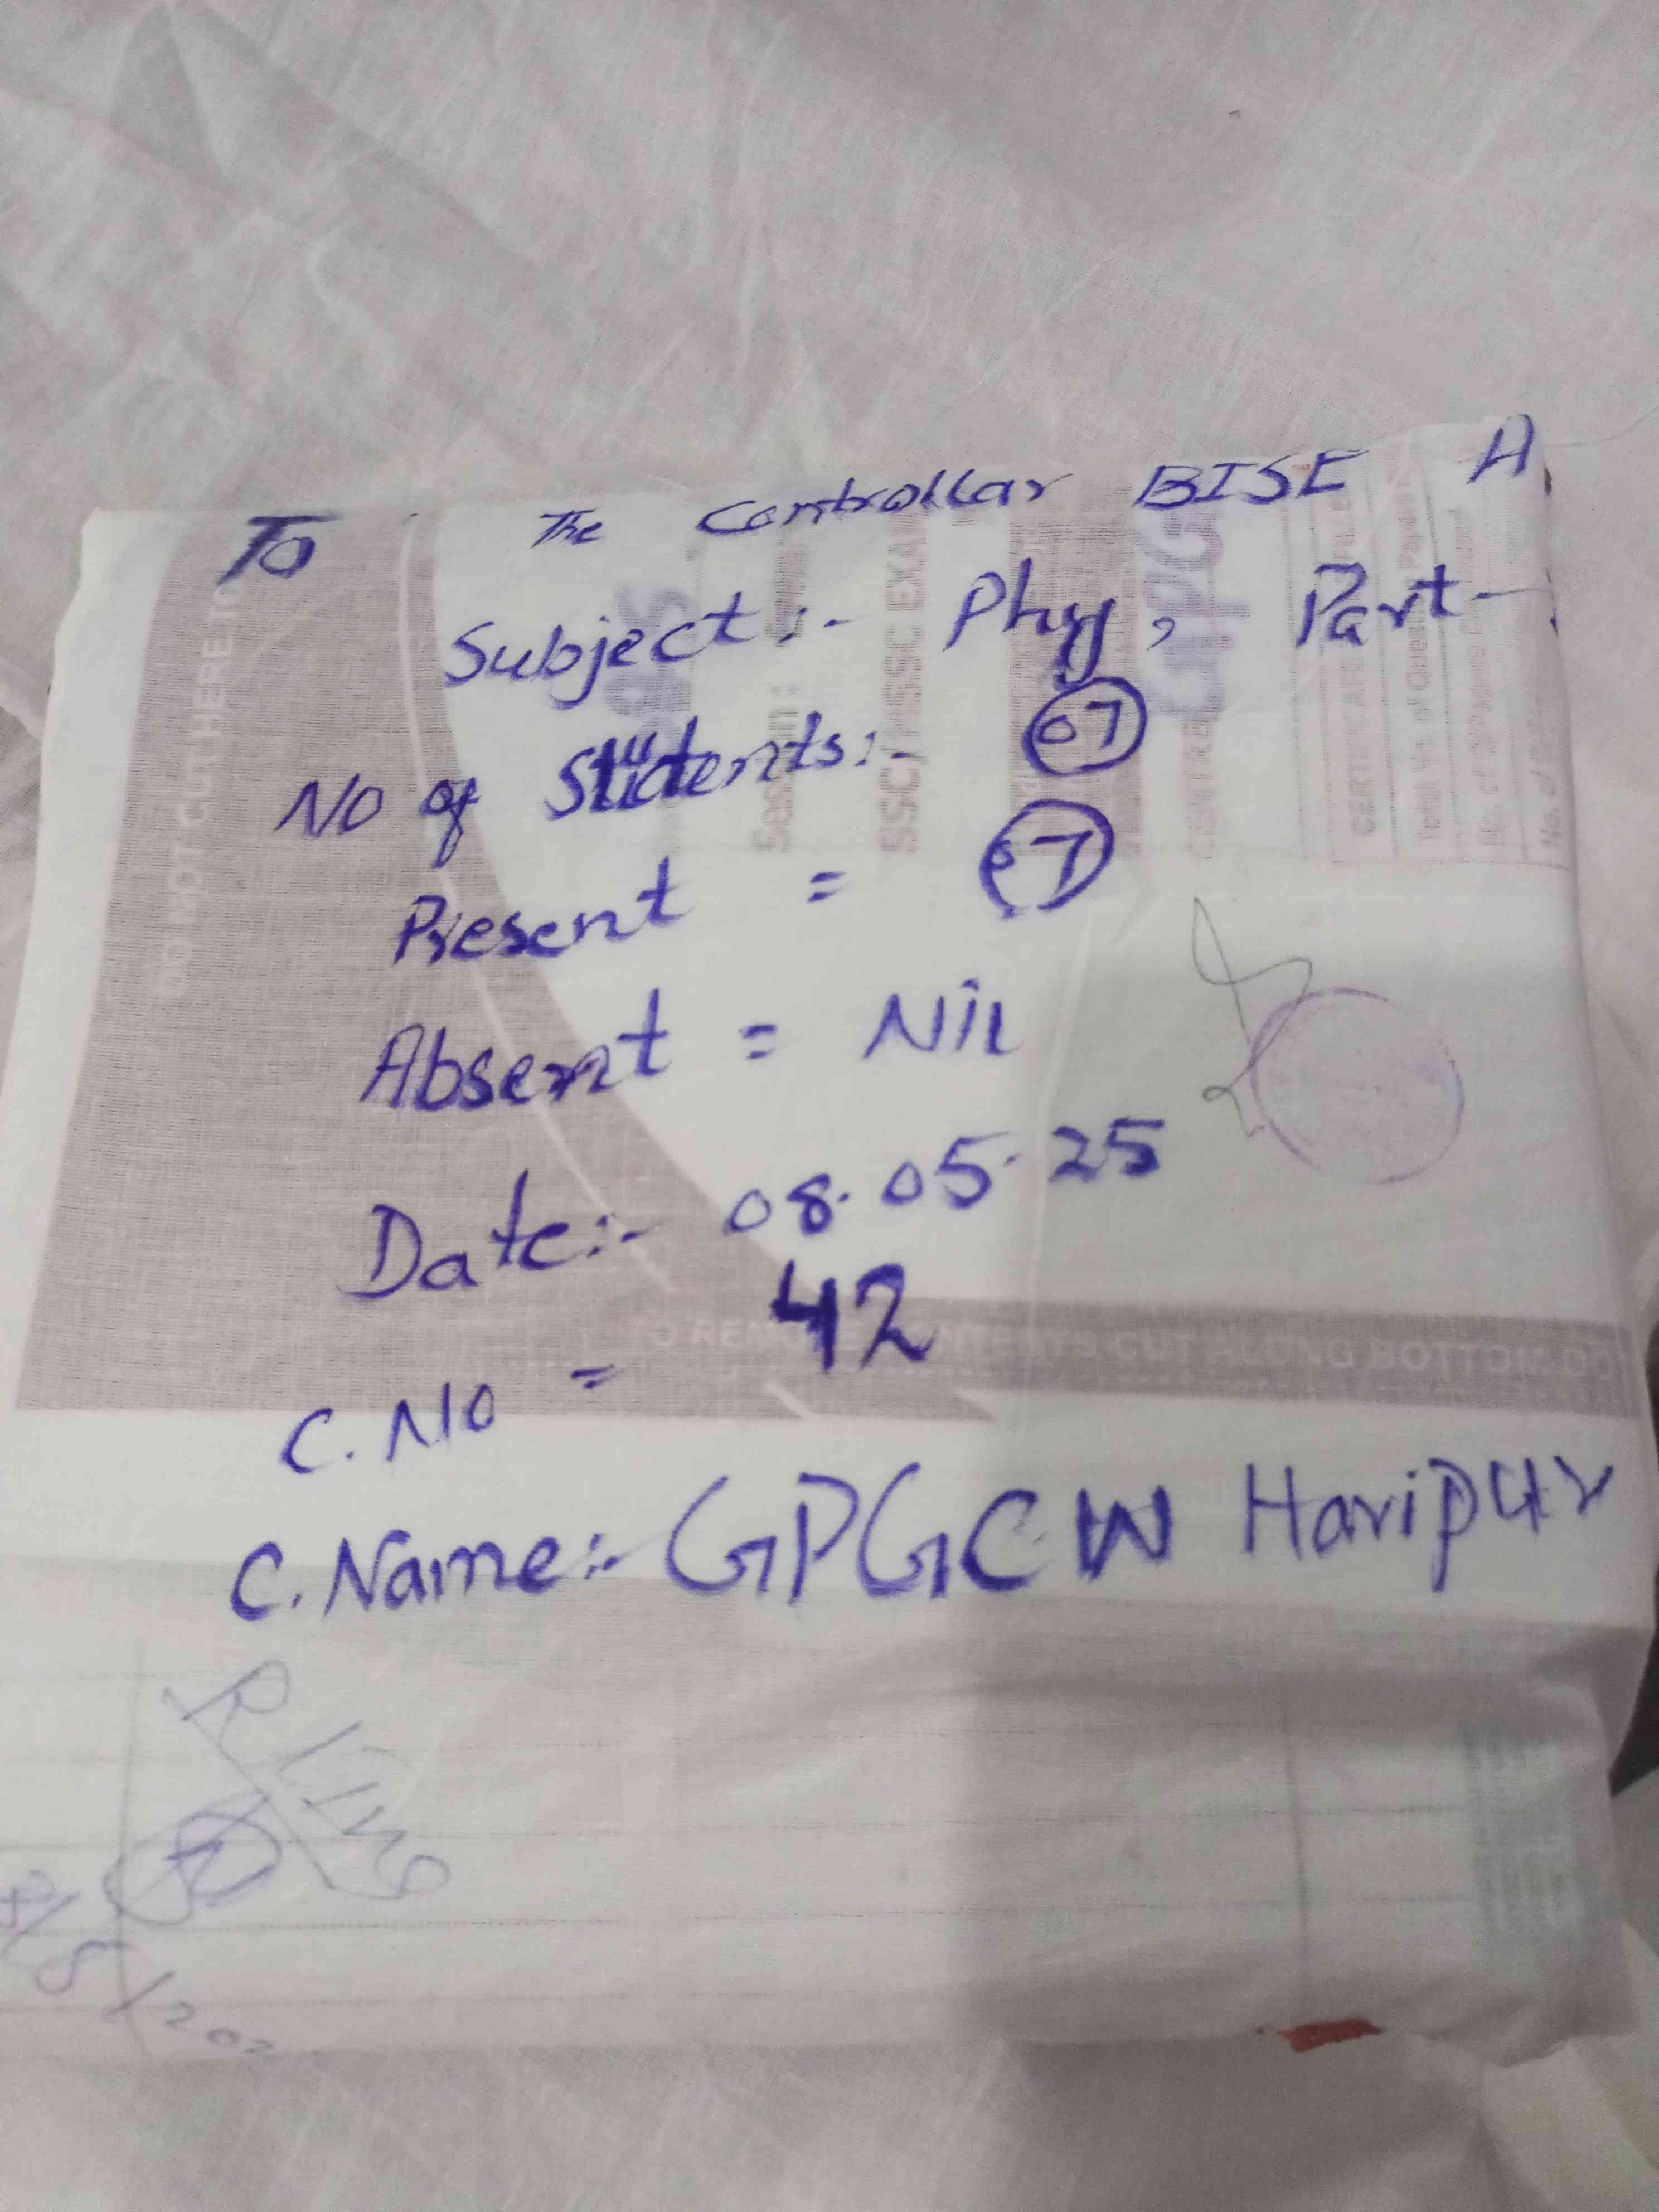 To The Controllar BISE A
Subject:- Phy, Part-
No of Students:- 07
Present = 07
Absent = Nil
Date:- 08.05.25
C.No = 42
C.Name:- GPGCW Haripur
DO NOT CUT HERE TO
SSC/HSSC EXA
TO REMOVE CONTENTS CUT ALONG BOTTOM DO